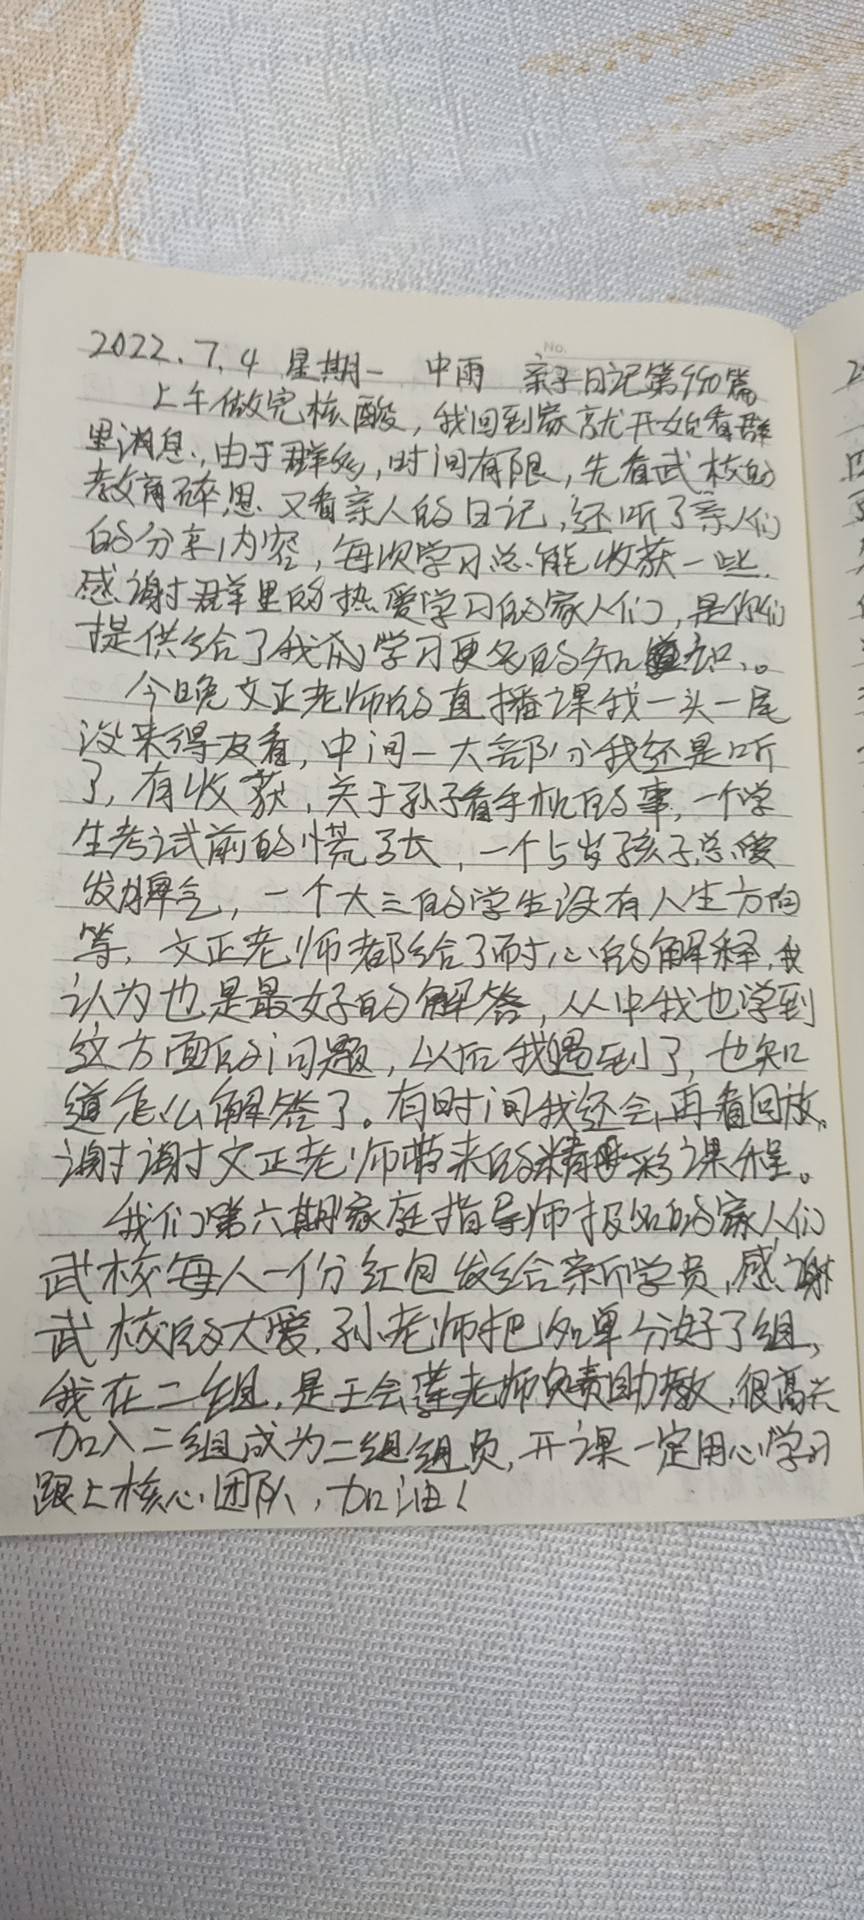 No.
2022.7.4 星期一 中雨 亲子日记第950篇
上午做完核酸，我回到家就开始看群
里消息，由于群多，时间有限，先看武校的
教育碎思，又看亲人的日记，还听了亲人们
的分享内容，每次学习总能收获一些，
感谢群里的热爱学习的家人们，是你们
提供给了我的学习更多的知识。
今晚文正老师的直播课我一头一尾
没来得及看，中间一大部分我还是听
了，有收获，关于孙子看手机的事，一个学
生考试前的慌了长，一个5岁孩子总爱
发脾气，一个大三的学生没有人生方向
等，文正老师都给了耐心的解释，我
认为也是最好的解答，从中我也学到
这方面的问题，以后我遇到了，也知
道怎么解答了。有时间我还会再看回放。
谢谢文正老师带来的精彩课程。
我们第六期家庭指导师报名的家人们
武校每人一份红包发给新学员，感谢
武校的大爱，孙老师把名单分好了组，
我在二组，是王会莲老师负责助教，很高兴
加入二组成为二组组员，开课一定用心学习
跟上核心团队，加油！